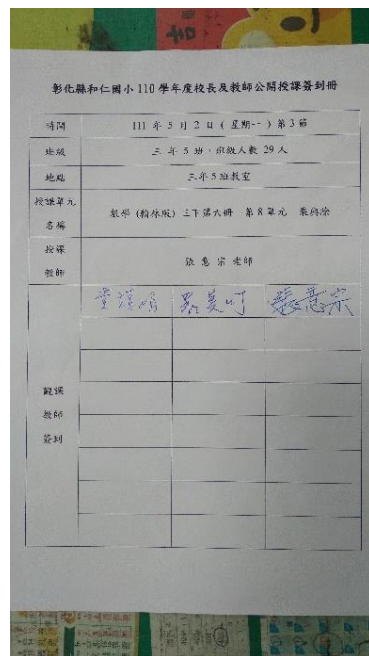 彰化縣和仁國小 110 學年度校長及教師公開授課簽到冊
時間 111 年 5 月 2 日 ( 星期一 ) 第 3 節
班級 三 年 5 班，班級人數 29 人
地點 三年 5 班教室
授課單元名稱 數學 (翰林版) 三下第六冊 第 8 單元 乘與除
授課教師 張意宗老師
張意宗
觀課教師簽到